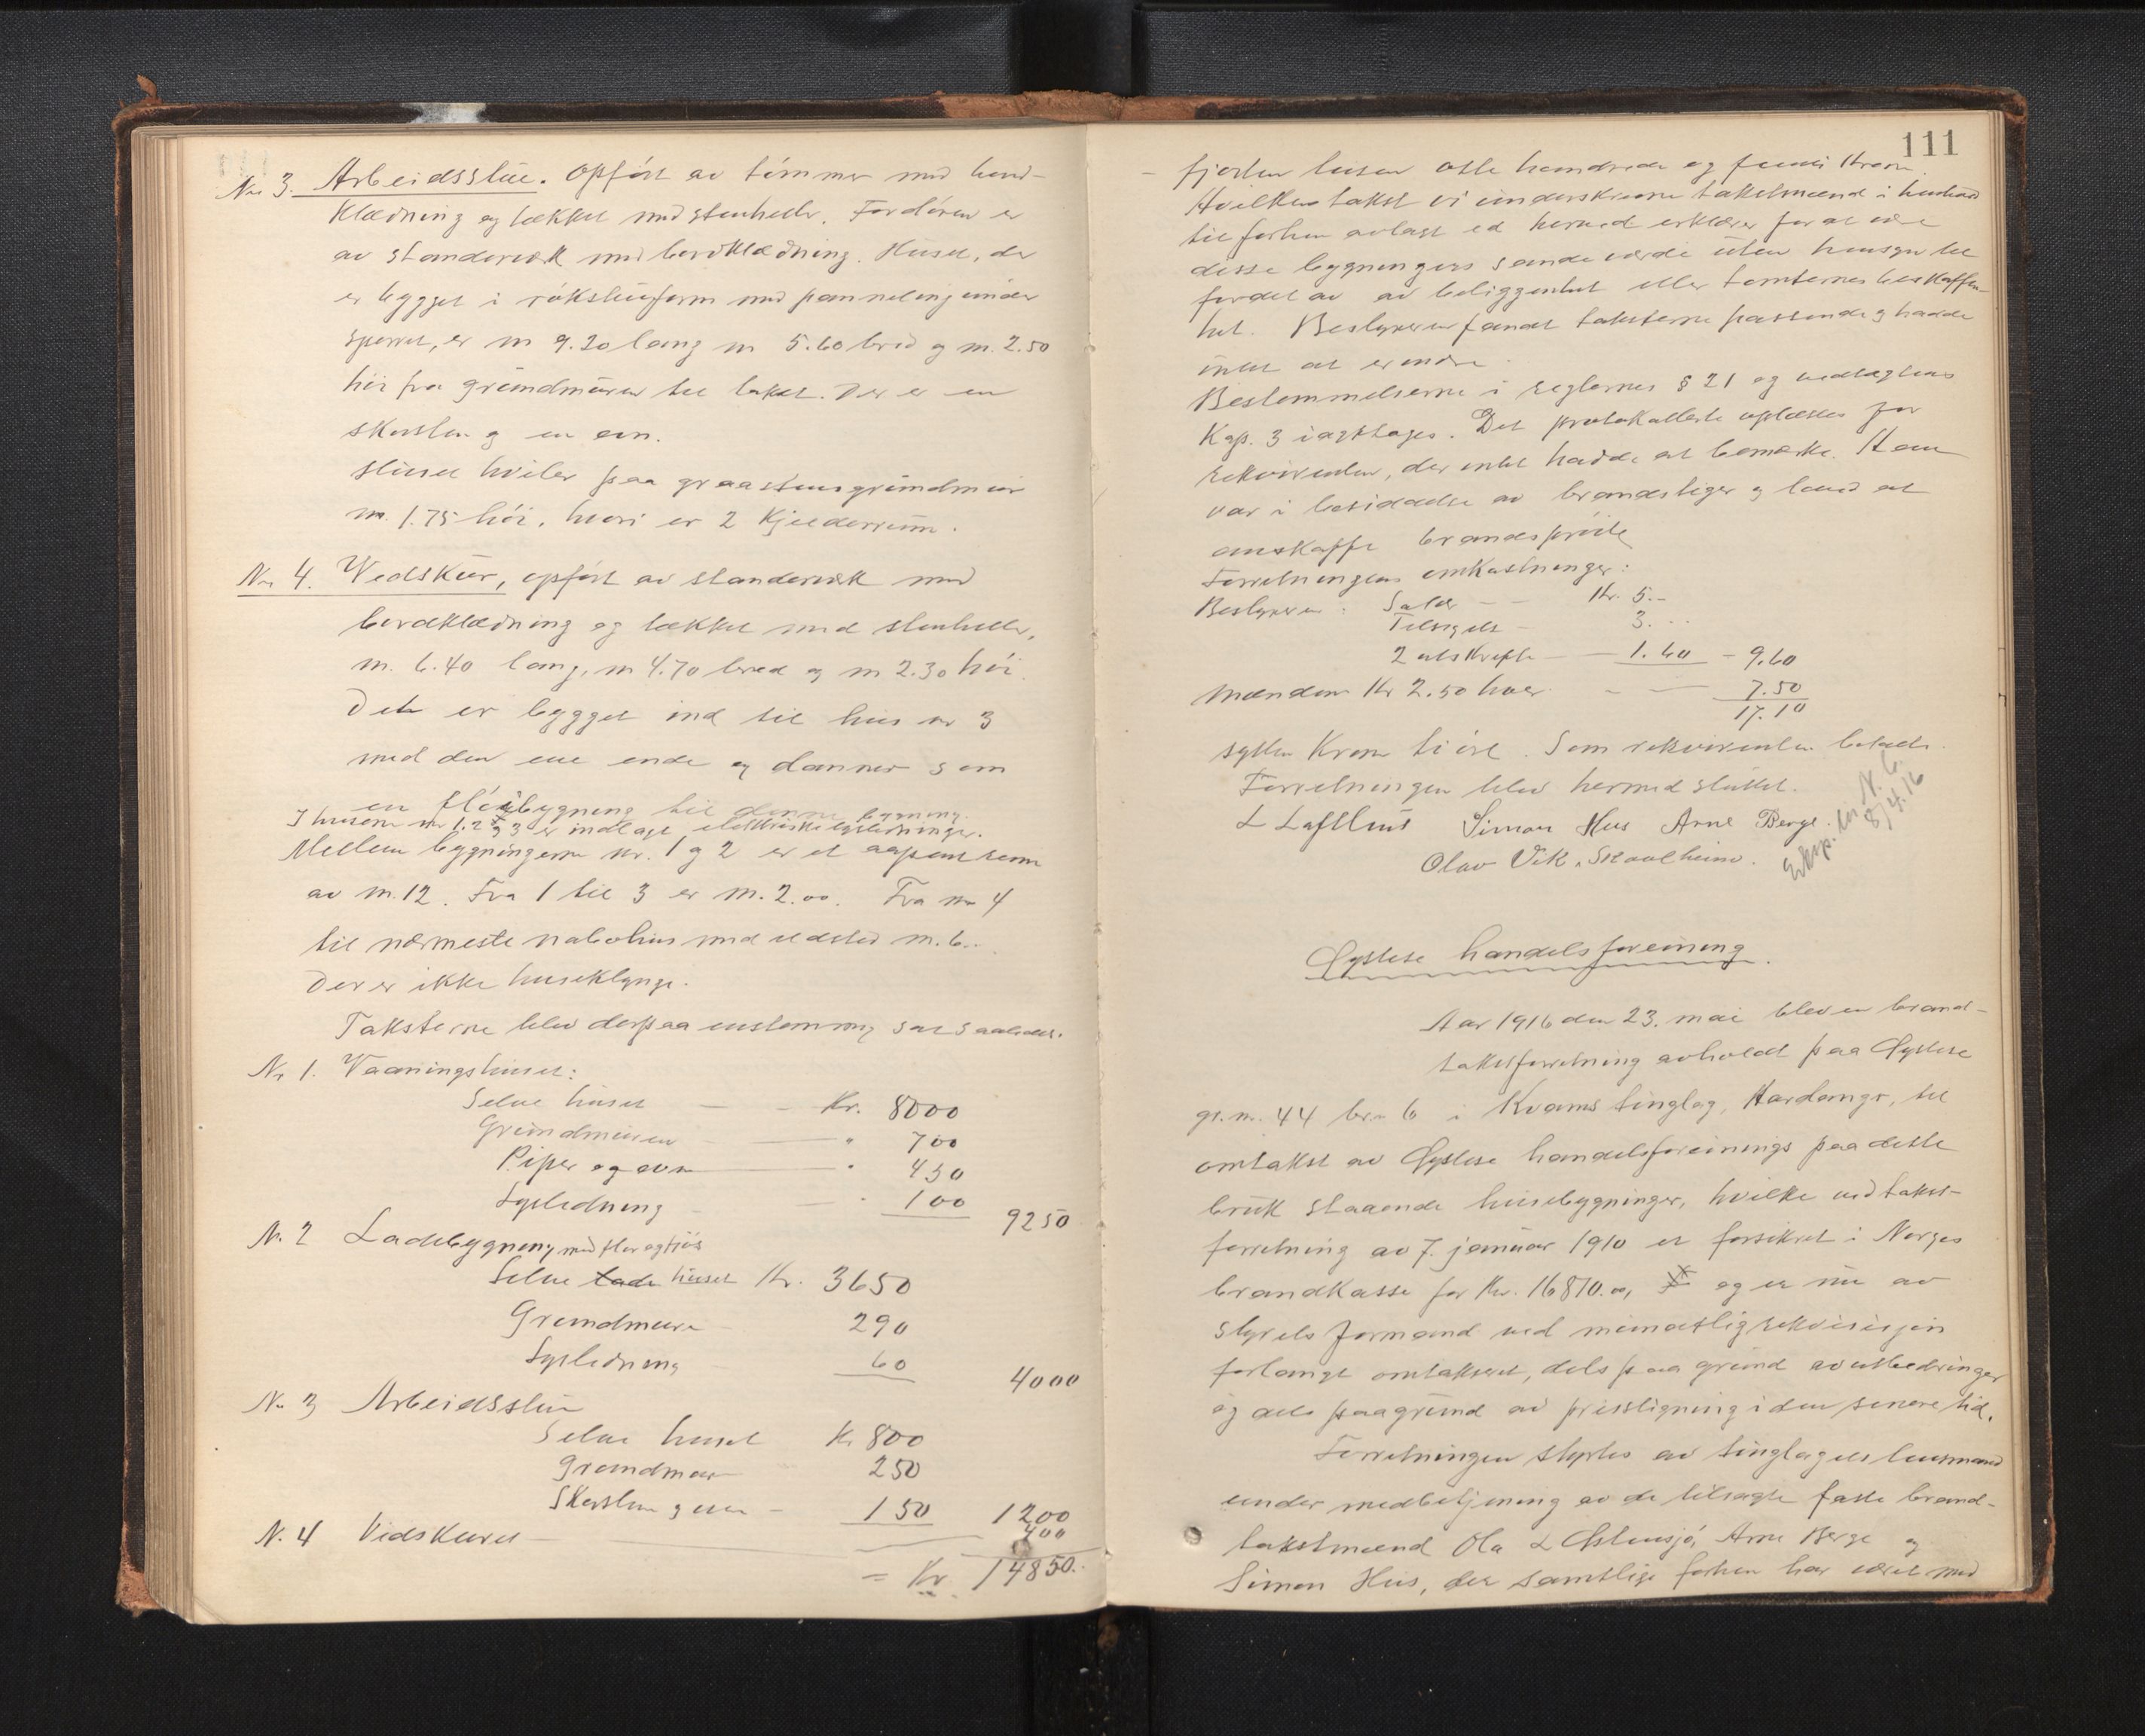 No 3. Arbeidsstue. Opført av tømmer med bord-
klædning og tækket med stenheller. Fordøren er
av standerverk med bordklædning. Huset, der
er bygget i røkstueform med panneling under
sperret, er m 9.20 lang m 5.60 bred og m. 2.50
høi fra grundmuren til taket. Der er en
skorsten og en ovn.
Stuen hviler paa graastensgrundmur
m. 1.75 høi, hvori er 2 kjelderrum.
No 4. Vedskur, opført av standerverk med
bordklædning og tækket med stenheller,
m. 6.40 lang, m 4.70 bred og m 2.30 høi.
Det er bygget ind til hus nr 3
med den ene ende og danner som
en fløibygning til denne bygning.
I husene nr 1, 2 og 3 er indlagt elektriske lysledninger.
Mellem bygningerne nr. 1 og 2 er et aapent rum
av m. 12. Fra 1 til 3 er m. 2.00. Fra nr 4
til nærmeste nabohus med ildsted m. 6..
Der er ikke huseklynge.
Taksterne blev derpaa enstemmig sat saaledes.
No 1. Vaaningshuset:
Selve huset — - Kr. 8000
Grundmuren — " 700
Piper og ovn — " 450
Lysledning — " 100 9250
No. 2 Ladebygning med flor og fjøs
Selve lade huset Kr. 3650
Grundmuren 290
Lysledning 60 4000
No 3 Arbeidsstue
Selve huset Kr 800
Grundmur 250
Skorsten og ovn - 150 1200
N. 4 Vedskuret — 400
= Kr 14850.
111
- fjorten tusen otte hundrede og femti kroner
Hvilken takst vi underskrevne takstmænd i henhold
til forhen avlagt ed herved erklærer for at være
disse bygningers sande værdi uten hensyn til
fordel av av beliggenhet eller tomternes beskaffen-
het. Bestyreren fandt taksterne passende og hadde
intet at erindre.
Bestemmelserne i reglernes § 21 og vedtægtens
Kap. 3 iagttages. Det protokollerte oplæstes for
rekvirenten, der intet hadde at bemærke. Han
var i besiddelse av brandstiger og lovet at
anskaffe brandsprøite
Forretningens omkostninger:
Bestyreren: Salær — Kr. 5.-
Tilsigelse — 3. ..
2 utskrifter — 1.60 - 9.60
Mændene Kr 2.50 hver. - — 7.50
17.10
sytten kroner ti øre. Som rekvirenten betalte.
Forretningen blev hermed sluttet.
L Lofthus Simon Hus Arne Berge.
Olav Vik, Skaalheim.
Eksp. til N. b.
8/4.16
Øystese handelsforeining.
Aar 1916 den 23. mai blev en brand-
takstforretning avholdt paa Øystese
gr. n. 44 br. n 6 i Kvams tinglag, Hardanger, til
omtakst av Øystese handelsforeinings paa dette
bruk staaende husebygninger, hvilke ved takst-
forretning av 7. januar 1910 er forsikret i Norges
brandkasse for Kr. 16810.00, og er nu av
styrets formand ved mundtlig rekvisisjon
forlangt omtaksert, dels paa grund av utbedringer
og dels paa grund av prisstigning i den senere tid.
Forretningen styrtes av tinglagets lensmand
under medbetjening av de tilsagte faste brand-
takstmænd Ola L Østensjø, Arne Berge og
Simon Hus, der samtlige forhen har været med